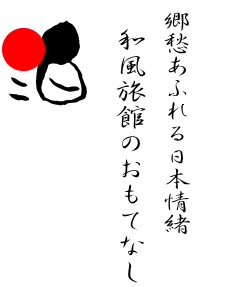 郷愁あふれる日本情緒
和風旅館のおもてなし